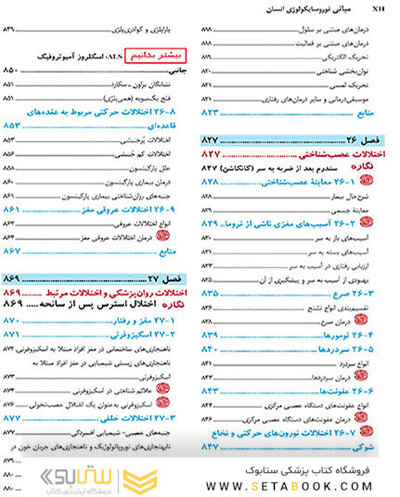 XII مبانی نوروسایکولوژی انسان
درمان‌های مبتنی بر سلول ۸۱۸
درمان‌های مبتنی بر فعالیت ۸۱۸
تحریک الکتریکی ۸۱۹
توان‌بخشی شناختی ۸۲۰
تحریک لمسی ۸۲۱
موسیقی‌درمانی و سایر درمان‌های رفتاری ۸۲۱
منابع ۸۲۳
فصل ۲۶ ۸۲۷
اختلالات عصب‌شناختی ۸۲۷
نگاره سندرم بعد از ضربه به سر (کانکاشن) ۸۲۷
۱-۲۶ معاینهٔ عصب‌شناختی ۸۲۸
شرح حال بیمار ۸۲۸
معاینهٔ جسمی ۸۲۹
۲-۲۶ آسیب‌های مغزی ناشی از تروما ۸۲۹
آسیب‌های باز به سر
آسیب‌های بسته به سر
ارزیابی رفتاری در آسیب به سر
بهبودی از آسیب به سر و پیشگیری از آن
۳-۲۶ صرع ۸۳۵
تقسیم‌بندی انواع تشنج
درمان صرع
۴-۲۶ تومورها ۸۳۹
۵-۲۶ سردردها ۸۴۰
انواع سردرد
درمان سردردها
۶-۲۶ عفونت‌ها ۸۴۳
انواع عفونت‌های دستگاه عصبی مرکزی
درمان عفونت‌های دستگاه عصبی مرکزی
۷-۲۶ اختلالات نورون‌های حرکتی و نخاع
شوکی ۸۴۷
پاراپلژی و کوادری‌پلژی ۸۴۹
بیشتر بدانیم ALS: اسکلروز آمیوتروفیک
جانبی ۸۵۰
نشانگان براون-سکارد ۸۵۱
فلج یک‌سویه (همی‌پلژی) ۸۵۱
۸-۲۶ اختلالات حرکتی مربوط به عقده‌های
قاعده‌ای ۸۵۳
اختلالات پُرجنبشی
اختلالات کم جُنبشی
علل پارکینسون
درمان بیماری پارکینسون
جنبه‌های روان‌شناختی بیماری پارکینسون
۹-۲۶ اختلالات عروقی مغز ۸۶۱
انواع اختلالات عروقی
درمان اختلالات عروقی مغز ۸۶۴
منابع ۸۶۷
فصل ۲۷ ۸۶۹
اختلالات روان‌پزشکی و اختلالات مرتبط ۸۶۹
نگاره اختلال استرس پس از سانحه ۸۶۹
۱-۲۷ مغز و رفتار ۸۷۰
۲-۲۷ اسکیزوفرنی ۸۷۱
ناهنجاری‌های ساختمانی در مغز افراد مبتلا به اسکیزوفرنی ۸۷۲
ناهنجاری‌های زیستی شیمیایی در افراد مبتلا به
اسکیزوفرنی
علائم شناختی در اسکیزوفرنی
اسکیزوفرنی به‌عنوان یک اختلال عصب‌تحولی
۳-۲۷ اختلالات خلقی ۸۷۷
جنبه‌های عصبی-شیمیایی افسردگی ۸۷۷
نابهنجاری‌های نوروپاتولوژیک و ناهنجاری‌های جریان خون در
ستابوک
فروشگاه اینترنتی کتاب
فروشگاه کتاب پزشکی ستابوک
WWW.SETABOOK.COM